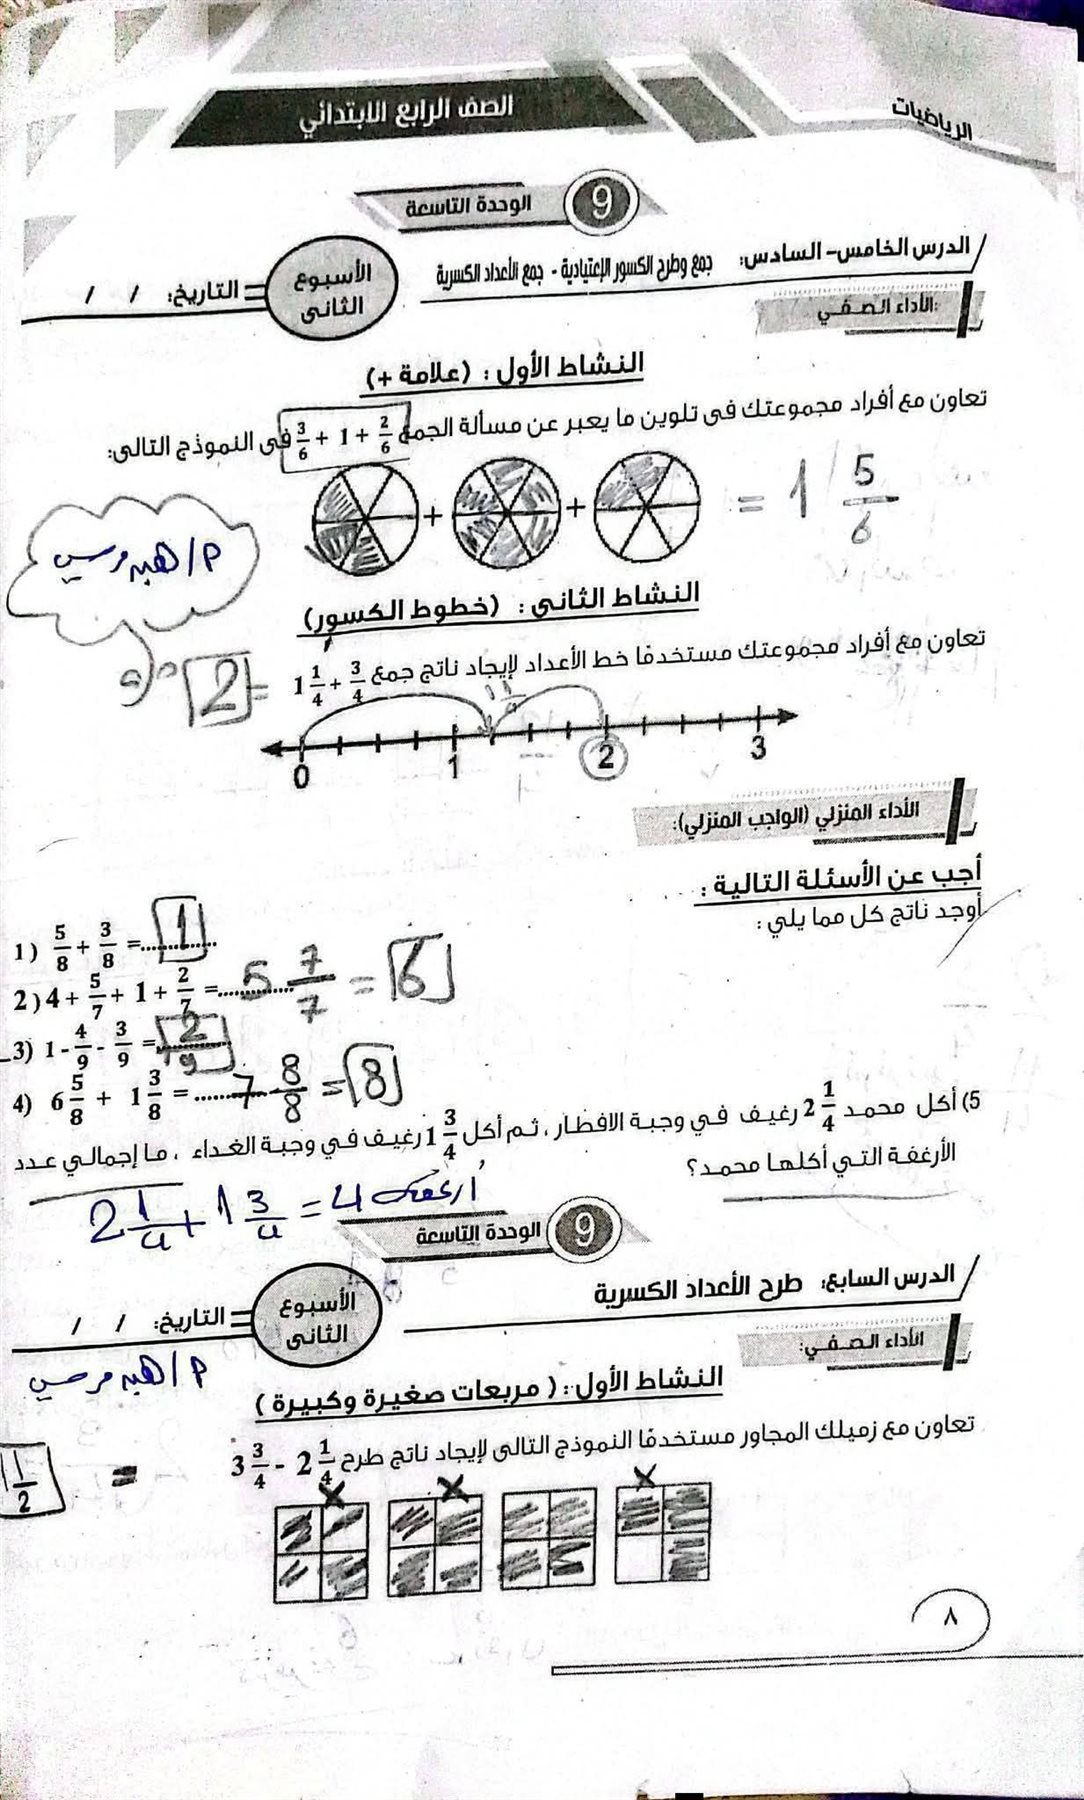 الرياضيات
الصف الرابع الابتدائي
9 الوحدة التاسعة
الدرس الخامس- السادس: جمع وطرح الكسور الإعتيادية - جمع الأعداد الكسرية
الأسبوع الثانى
التاريخ: / /
الأداء الصفي:
النشاط الأول : (علامة +)
تعاون مع أفراد مجموعتك فى تلوين ما يعبر عن مسألة الجمع 3/6 + 1 + 2/6 فى النموذج التالى:
+ + = 1 5/6
م/ هبه مرسي
النشاط الثانى : (خطوط الكسور)
تعاون مع أفراد مجموعتك مستخدمًا خط الأعداد لإيجاد ناتج جمع 1 1/4 + 3/4
= 2
0 1 2 3
الأداء المنزلي (الواجب المنزلي):
أجب عن الأسئلة التالية :
أوجد ناتج كل مما يلي :
1) 5/8 + 3/8 =.......... 1
2) 4 + 5/7 + 1 + 2/7 =.......... 5 7/7 = 6
3) 1 - 4/9 - 3/9 =.......... 2/9
4) 6 5/8 + 1 3/8 =.......... 7 8/8 = 8
5) أكل محمد 2 1/4 رغيف في وجبة الافطار ، ثم أكل 1 3/4 رغيف في وجبة الغداء ، ما إجمالي عدد
الأرغفة التي أكلها محمد؟
2 1/4 + 1 3/4 = 4 أرغفة
9 الوحدة التاسعة
الدرس السابع: طرح الأعداد الكسرية
الأسبوع الثانى
التاريخ: / /
الأداء الصفي:
م/ هبه مرسي
النشاط الأول : ( مربعات صغيرة وكبيرة )
تعاون مع زميلك المجاور مستخدمًا النموذج التالى لإيجاد ناتج طرح 3 3/4 - 2 1/4
= 1 1/2
٨